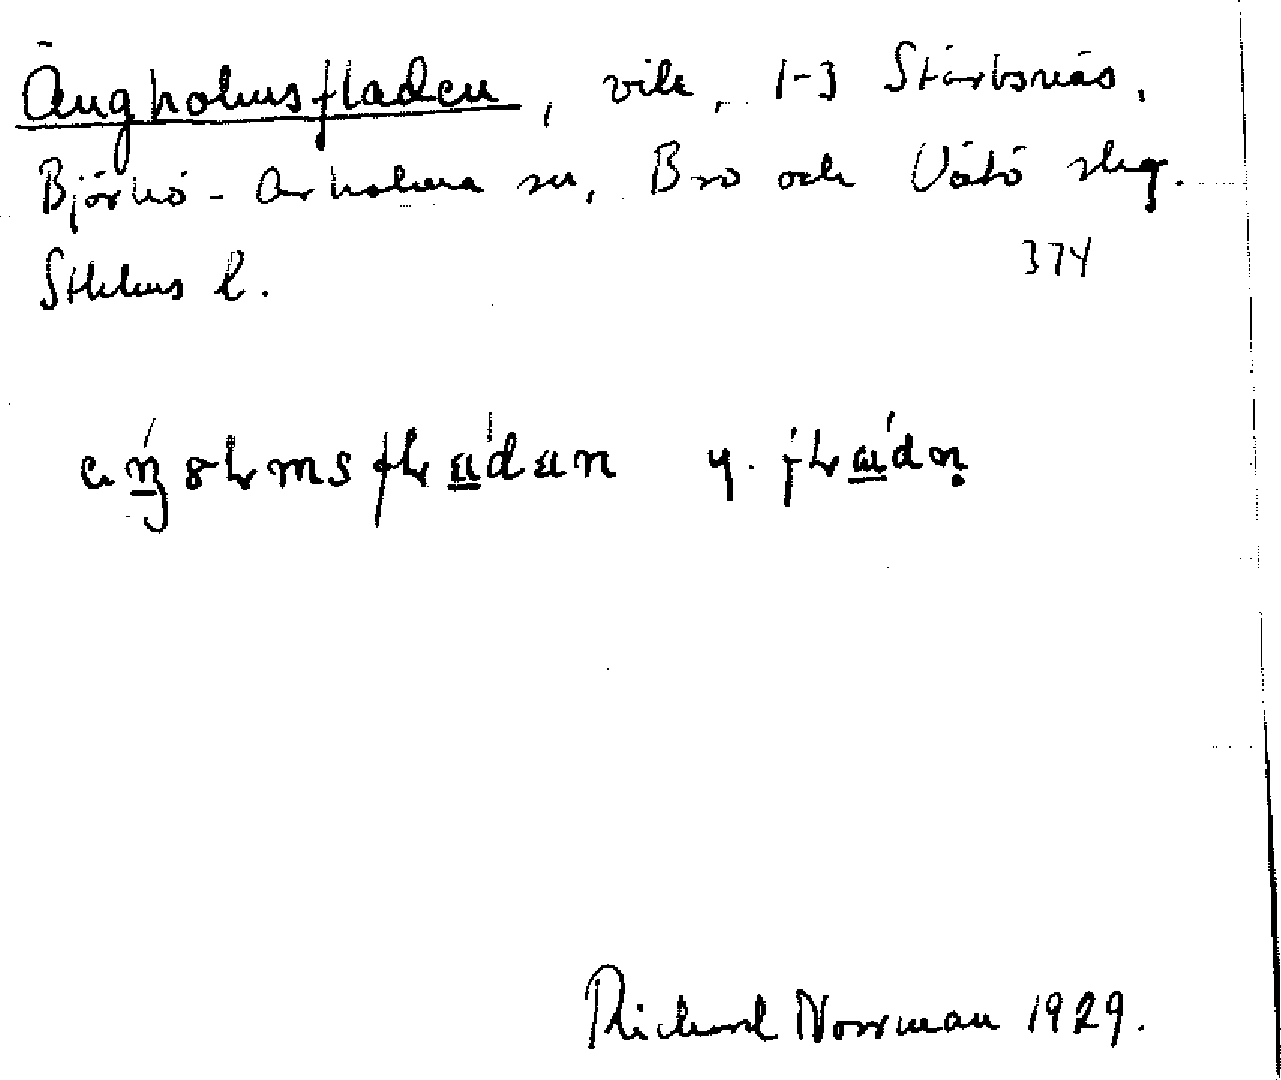 Ängholmsfladen, vik, 1-3 Stärbsnäs,
Björkö-Arholma sn, Bro och Vätö skg.
Sthlms l.
374
Richard Norrman 1929.